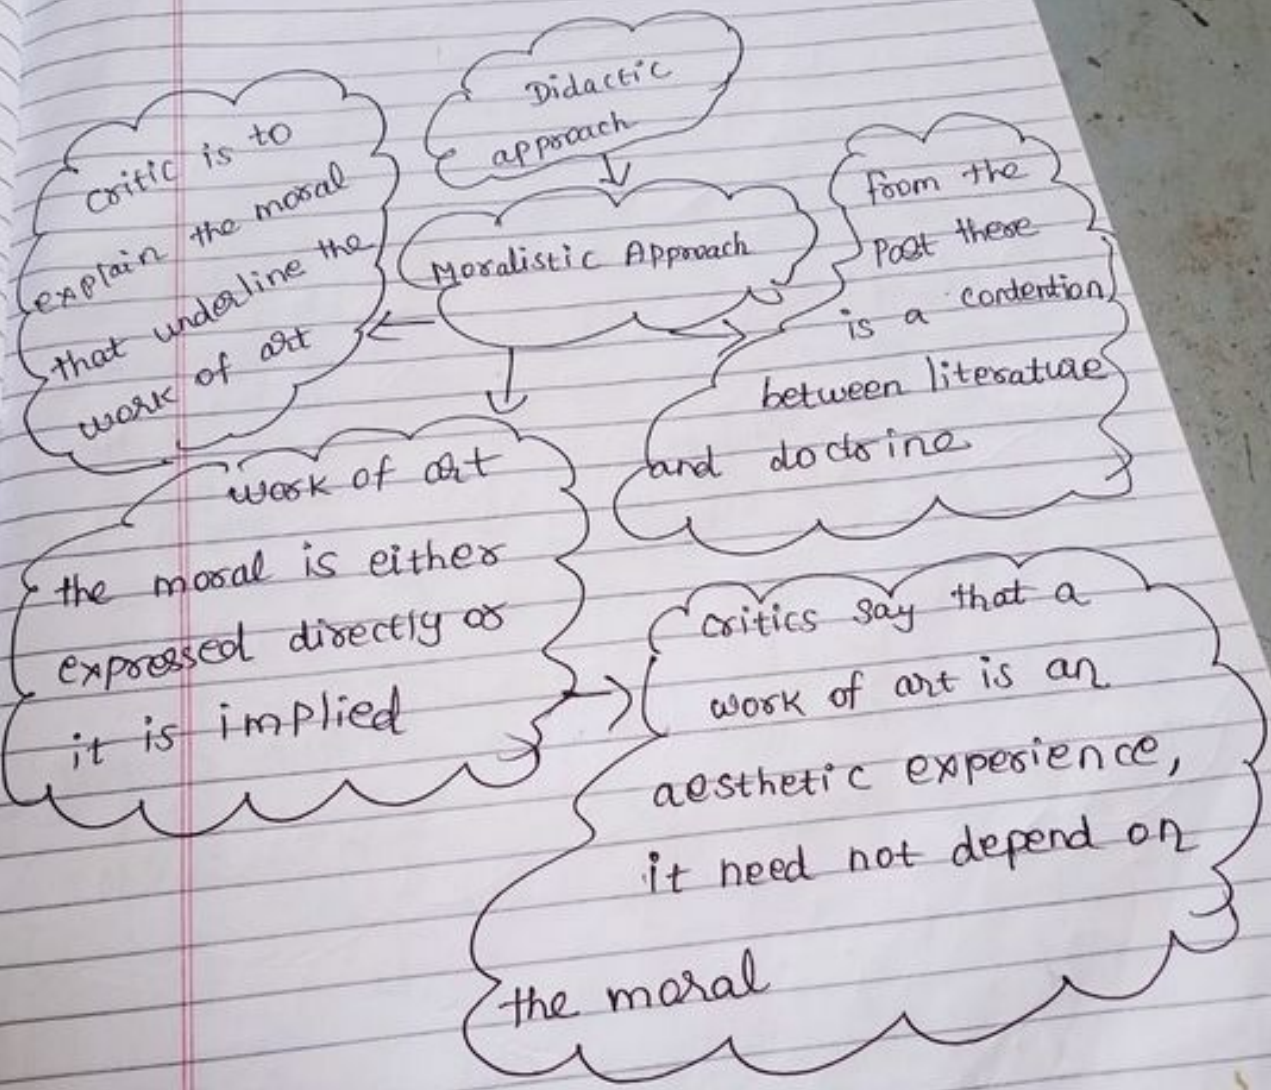 Didactic
approach
Moralistic Approach
critic is to
explain the moral
that underline the
work of art
from the
Past there
is a contention
between literature
and doctrine
work of art
the moral is either
expressed directly or
it is implied
critics say that a
work of art is an
aesthetic experience,
it need not depend on
the moral